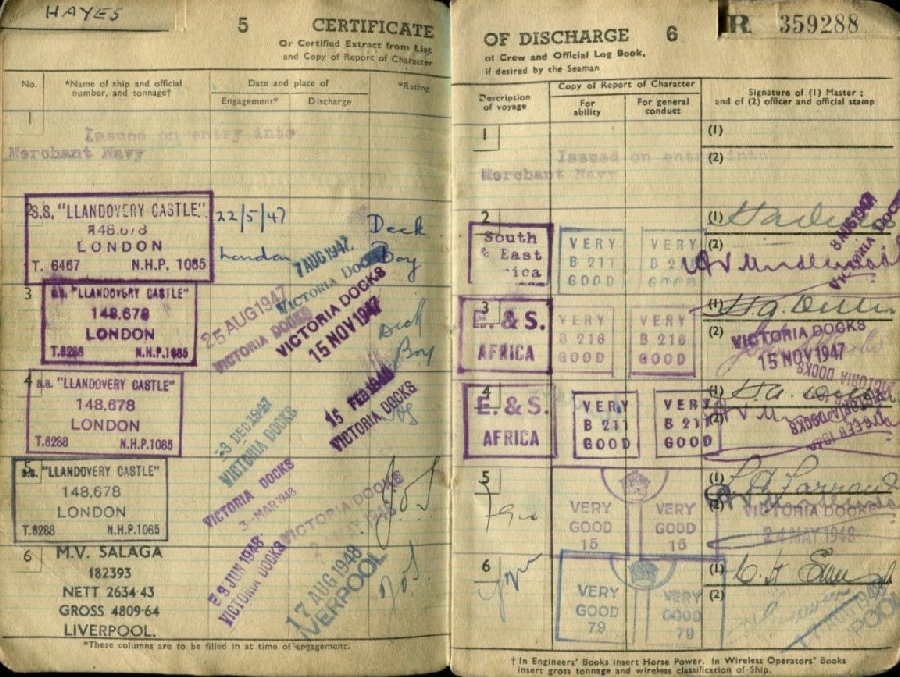 HAYES
5 CERTIFICATE
Or Certified Extract from List
and Copy of Report of Character
No.
*Name of ship and official
number, and tonnage†
Date and place of
Engagement* Discharge
*Rating
1
Issued on entry into
Merchant Navy
2
S.S. "LLANDOVERY CASTLE"
LONDON
T. 6467 N.H.P. 1085
22/5/47
London
7 AUG 1947
VICTORIA DOCKS
Deck
Boy
3
s.s. "LLANDOVERY CASTLE"
148,678
LONDON
T.8288 N.H.P.1085
25 AUG 1947
VICTORIA DOCKS
VICTORIA DOCKS
15 NOV 1947
Deck
Boy
4
s.s. "LLANDOVERY CASTLE"
148,678
LONDON
T.8288 N.H.P.1085
DEC 1947
VICTORIA DOCKS
15 FEB 1948
VICTORIA DOCKS
5
s.s. "LLANDOVERY CASTLE"
148,678
LONDON
T.8288 N.H.P.1085
VICTORIA DOCKS
3-MAR 1948
VICTORIA DOCKS
MAY 1948
J.O.S
6
M.V. SALAGA
182393
NETT 2634·43
GROSS 4809·64
LIVERPOOL.
JUN 1948
VICTORIA DOCKS
17 AUG 1948
LIVERPOOL
*These columns are to be filled in at time of engagement.
R 359288
OF DISCHARGE 6
of Crew and Official Log Book,
if desired by the Seaman
Description
of voyage
Copy of Report of Character
For
ability
For general
conduct
Signature of (1) Master;
and of (2) officer and official stamp
1
Issued on entry into
Merchant Navy
(1)
(2)
2
South
& East
VERY
B 211
GOOD
VERY
GOOD
(1)
(2)
8 AUG 1947
VICTORIA DOCKS
3
E. & S.
AFRICA
VERY
B 216
GOOD
VERY
B 216
GOOD
(1)
(2)
VICTORIA DOCKS
15 NOV 1947
VICTORIA DOCKS
4
E. & S.
AFRICA
VERY
B 211
GOOD
VERY
B 211
GOOD
(1)
(2)
5
VERY
GOOD
15
VERY
GOOD
15
(1)
(2)
VICTORIA DOCKS
24 MAY 1948
6
VERY
GOOD
79
VERY
GOOD
79
(1)
(2)
† In Engineers' Books insert Horse Power. In Wireless Operators' Books
insert gross tonnage and wireless classification of Ship.